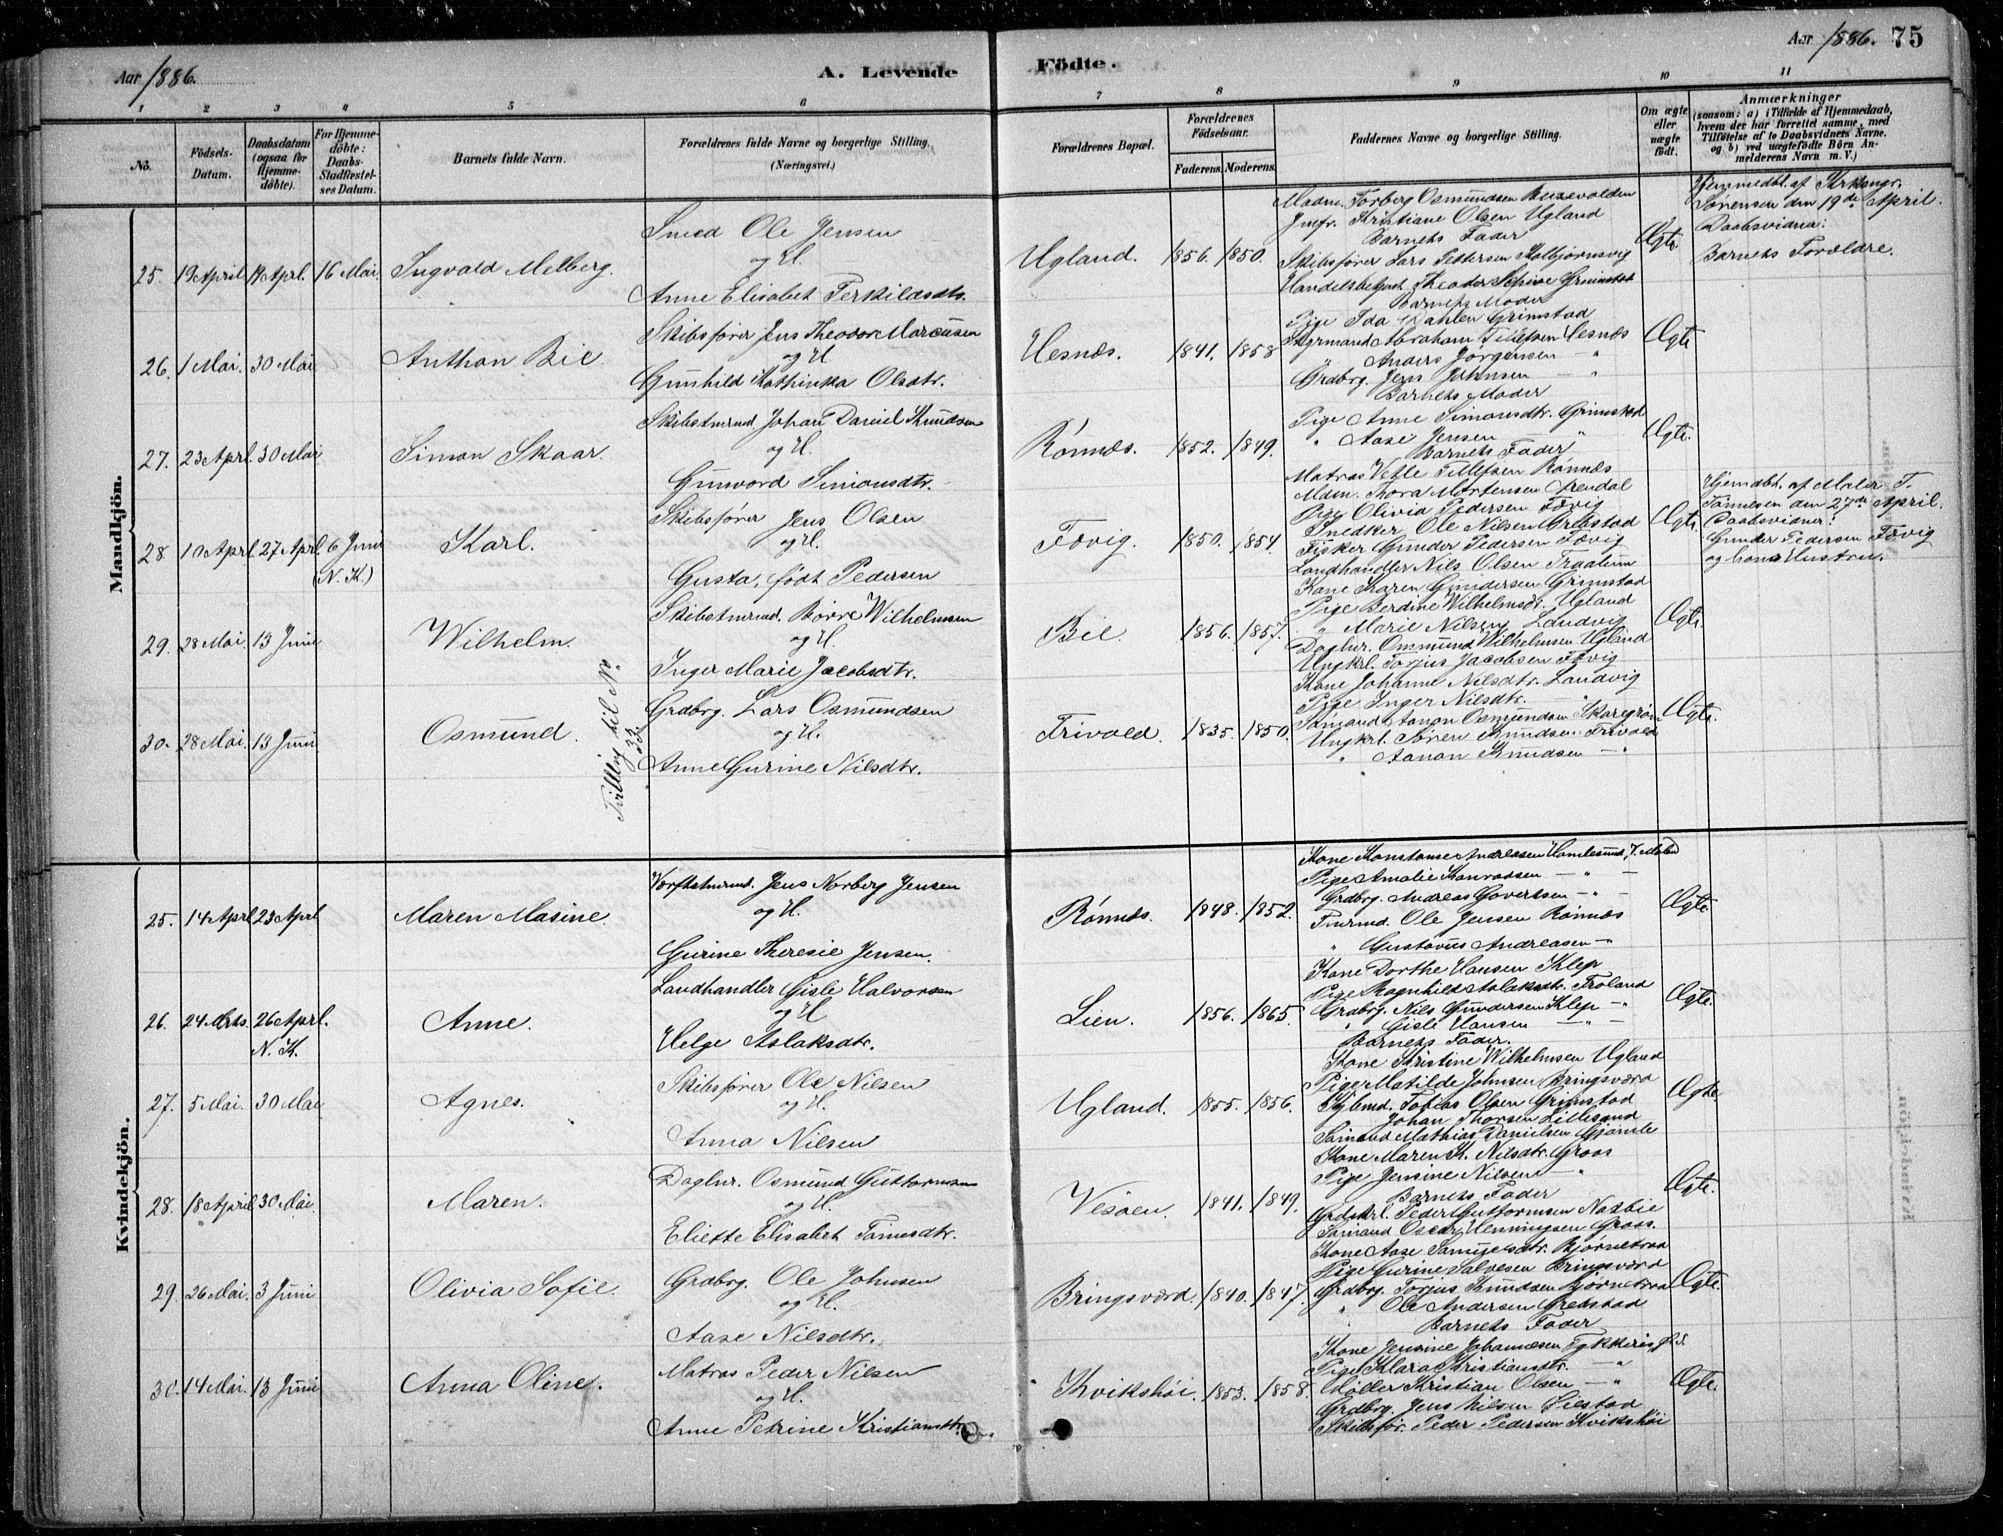 Aar 1886.
A. Levende
Födte.
Aar 1886. 75
1 2 3 4 5 6 7 8 9 10 11
No.
Födsels-Datum.
Daabsdatum (ogsaa for Hjemme-döbte).
For Hjemme-döbte: Daabs-Stadfæstel-ses Datum.
Barnets fulde Navn.
Forældrenes fulde Navne og borgerlige Stilling.
(Næringsvei.)
Forældrenes Bopæl.
Forældrenes Födselsaar.
Faderens. Moderens.
Faddernes Navne og borgerlige Stilling.
Om ægte eller uægte födt.
Anmærkninger
(saasom: a) i Tilfælde af Hjemmedaab, hvem der har forrettet samme, med Tilföielse af to Daabsvidners Navne, og b) ved uægtefödte Börn An-melderens Navn m. V.)
Mandkjön.
25. 19 April 19 Aprl. 16 Mai. Ingvald Melberg.
Smed Ole Jensen
og H.
Anne Elisabet Terkildsdtr.
Ugland. 1856. 1850.
Madm. Torberg Osmundsen
Jmfr. Kristiane Olsen Ugland
Barnets Fader
Skibsfører Lars Pettersen
Handelsbetjent Theodor Schiøe Grimstad
Barnets Moder
Ægte
Hjemmedbt. af Kirkesgr.
Sørensen den 19de April.
Daabsvidner:
Barnets Forældre.
26. 1 Mai. 30 Mai. Anthon Bie
Skibsfører Jens Theodor Marcusen
og H
Gunhild Mathinka Olsdtr.
Hesnæs. 1841. 1858
Pige Ida Dahlen Grimstad
Styrmand Abraham Tellefsen Hesnæs
" Anders Jørgensen — "
Grdbrg. Jens Johnsen — "
Barnets Moder
Ægte
27. 23 Aprl. 30 Mai Simon Skaar.
Skibstmrmd Johan Daniel Knudsen
og H.
Gunvord Simonsdtr.
Rønnæs. 1852. 1849.
Pige Anne Simonsdtr. Grimstad
" Aase Jensen — "
Barnets Fader
Matros Vetle Tellefsen Rønnæs
Ægte.
28. 10 Aprl. 27 Aprl. 6 Juni (N. K.) Karl.
Skibsfører Jens Olsen
og H.
Gusta, født Pedersen
Fævig. 1850. 1854.
Mdm. Thora Mortensen Arendal
Pige Olivia Pedersen Fævig
Snedker Ole Nilsen Grebstad
Fisker Gunder Pedersen Fævig
Landhandler Nils Olsen
Ægte.
Hjemdbt. af Maler T.
Tønnesen den 27de April.
Daabsvidner:
Gunder Pedersen Fævig
og hans Hustru.
29. 28 Mai. 13 Juni Wilhelm.
Skibstmrmd. Børre Wilhelmsen
og H.
Inger Marie Jacobsdtr.
Bie. 1856. 1857.
Kone Karen Gundersen Grimstad
Pige Berdine Wilhelmsdtr. Ugland
" Marie Nilsen Landvig
Daglnr. Osmund Wilhelmsen Ugland
Ungkrl. Torjus Jacobsen Fævig
Ægte.
30. 28 Mai. 13 Juni Osmund.
Tvilling til No 33
Grdbrg. Lars Osmundsen
og H.
Anne Gurine Nilsdtr.
Frivold. 1835. 1850.
Kone Johanne Nilsdtr. Landvig
Pige Inger Nilsdtr. "
Sømand Aanon Osmundsen
Ungkrl. Søren Knudsen Frivold
" Aanon Knudsen — "
Ægte.
Kvindekjön.
25. 14 Aprl 23 Aprl Maren Masine.
Værftstmrmd. Jens Norberg Jensen
og H.
Gurine Theresie Jensen.
Rønnæs. 1848. 1852.
Kone Konstanse Andreasen
Pige Amalie Konradsen — " —
Grdbrg. Andreas Govertsen — " —
Tmrmd. Ole Jensen Rønnæs
" Gustavus Andreasen — "
Ægte.
26. 24 Mrts. 26 Aprl. N. K. Anne.
Landhandler Gisle Halvorsen
og H
Helge Aslaksdtr.
Lien. 1856. 1865.
Kone Dorthe Hansen Klep
Pige Ragnhild Aslaksdtr. Froland
Grdbrg. Nils Gundersen Klep "
" Gisle Hansen — "
Barnets Fader.
Ægte.
27. 5 Mai. 30 Mai Agnes.
Skibsfører Ole Nilsen
og H.
Anna Nilsen
Ugland. 1855. 1856.
Kone Kristine Wilhelmsen Ugland
Pige Matilde Johnsen Bringsværd
Tobias Olsen Grimstad
Johan Thorsen Lillesand
Sømand Mathias Danielsen Gjømle
Ægte
28. 18 April 30 Mai. Maren.
Daglnr. Osmund Guttormsen
og H.
Eliette Elisabet Tønnesdtr.
Vesøen. 1841. 1849.
Kone Maren K. Nilsdtr. Groos
Pige Jensine Nilsen — "
Barnets Fader
Grdskrl. Peder Guttormsen
Sømand Oscar Henningsen Groos.
Ægte.
29. 26 Mai. 3 Juni Olivia Sofie.
Grdbrg. Ole Johnsen
og H.
Aase Nilsdtr.
Bringsværd. 1840. 1847.
Kone Aase Samuelsdtr. Bjørnetraa
Pige Gurine Salvesen Bringsværd
Grdbrg. Torjus Knudsen Bjørnetraa
" Ole Andersen Grebstad
Barnets Fader
Ægte.
30. 14 Mai. 13 Juni Anna Oline.
Matros Peder Nilsen
og H.
Anne Petrine Kristiansdtr.
Kvikshöi. 1853. 1858.
Kone Jensine Johannesen
Pige Klara Kristiansdtr. — "
Møller Kristian Olsen — "
Grdbrg. Jens Nilsen
Skibsfør. Peder Pedersen Kvikshöi
Ægte.